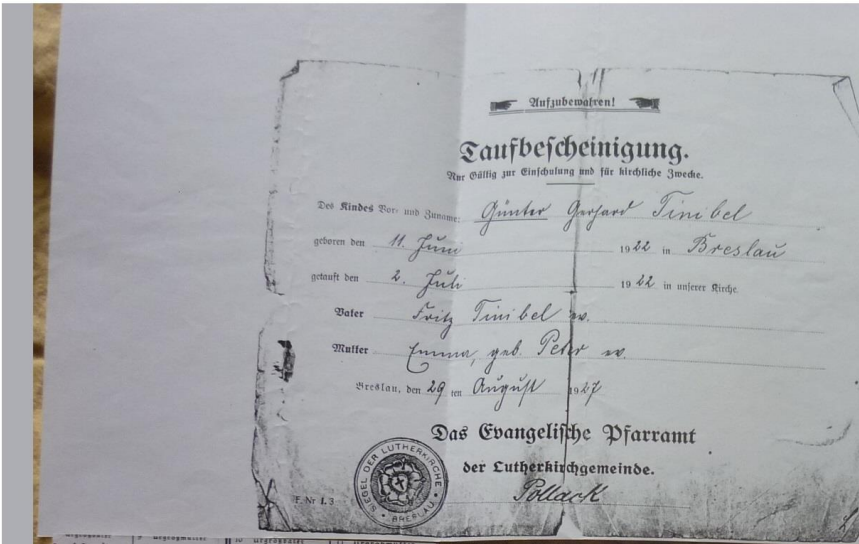 Aufzubewahren!
Taufbescheinigung.
Nur Gültig zur Einschulung und für kirchliche Zwecke.
Des Kindes Vor- und Zuname: Günter Gerhard Tinibel
geboren den 11. Juni 1922 in Breslau
getauft den 2. Juli 1922 in unserer Kirche.
Vater Fritz Tinibel ev.
Mutter Emma, geb. Peter ev.
Breslau, den 29 ten August 1927
Das Evangelische Pfarramt
der Lutherkirchgemeinde.
Pollack
SIEGEL DER LUTHERKIRCHE
BRESLAU
F. Nr 1. 3